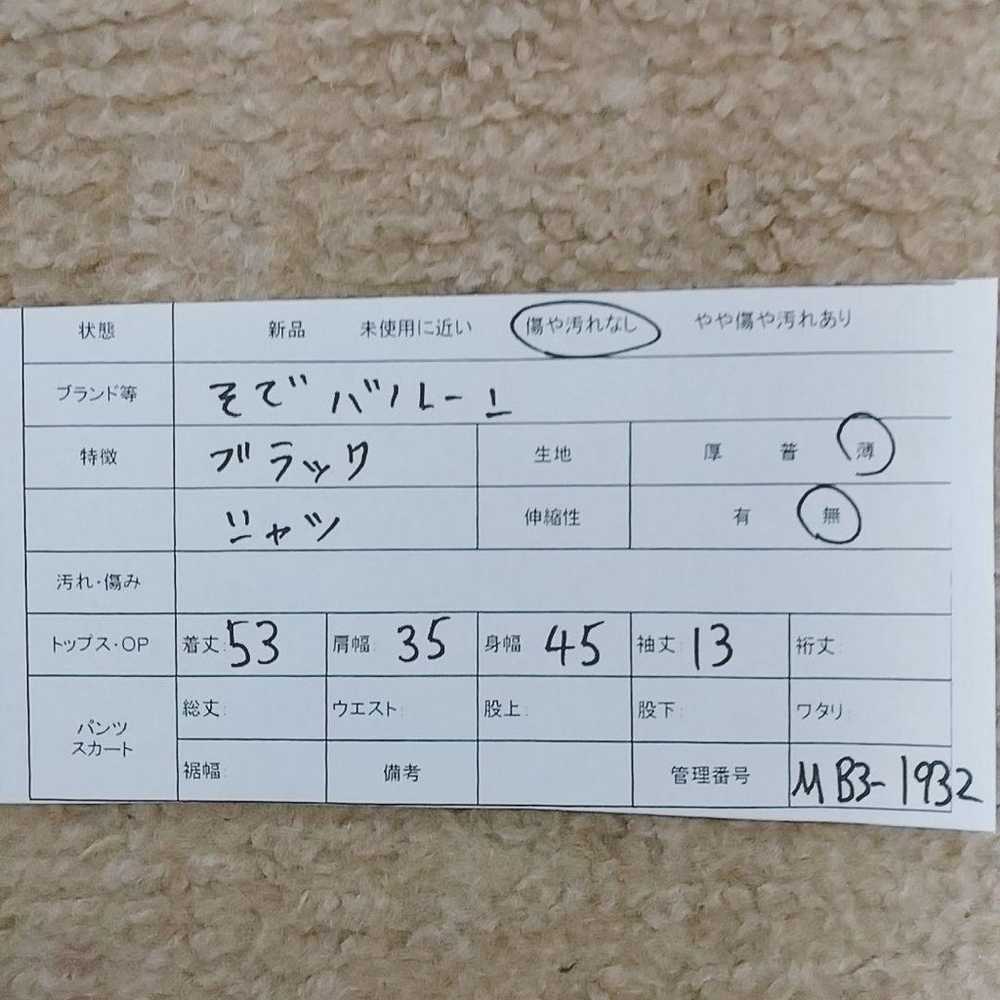 状態 新品 未使用に近い 傷や汚れなし やや傷や汚れあり
ブランド等 そでバルーン
特徴 ブラック 生地 厚 普 薄
シャツ 伸縮性 有 無
汚れ・傷み
トップス・OP 着丈:53 肩幅:35 身幅:45 袖丈:13 裄丈:
パンツ スカート 総丈: ウエスト: 股上: 股下: ワタリ:
裾幅: 備考 管理番号 MB3-1932